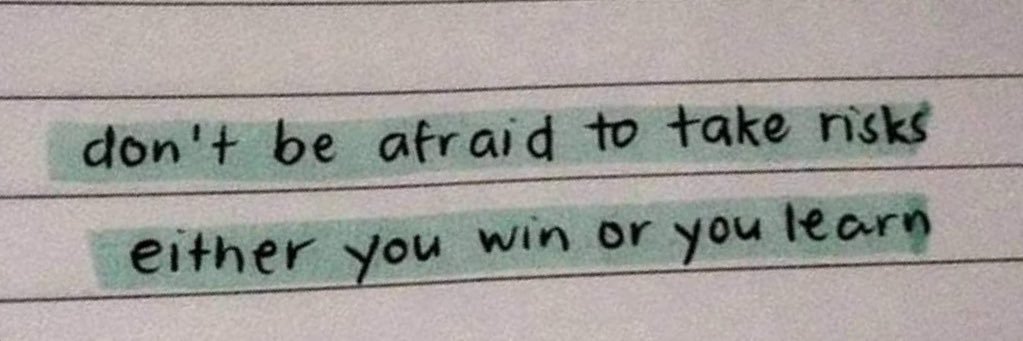 don't be afraid to take risks
either you win or you learn